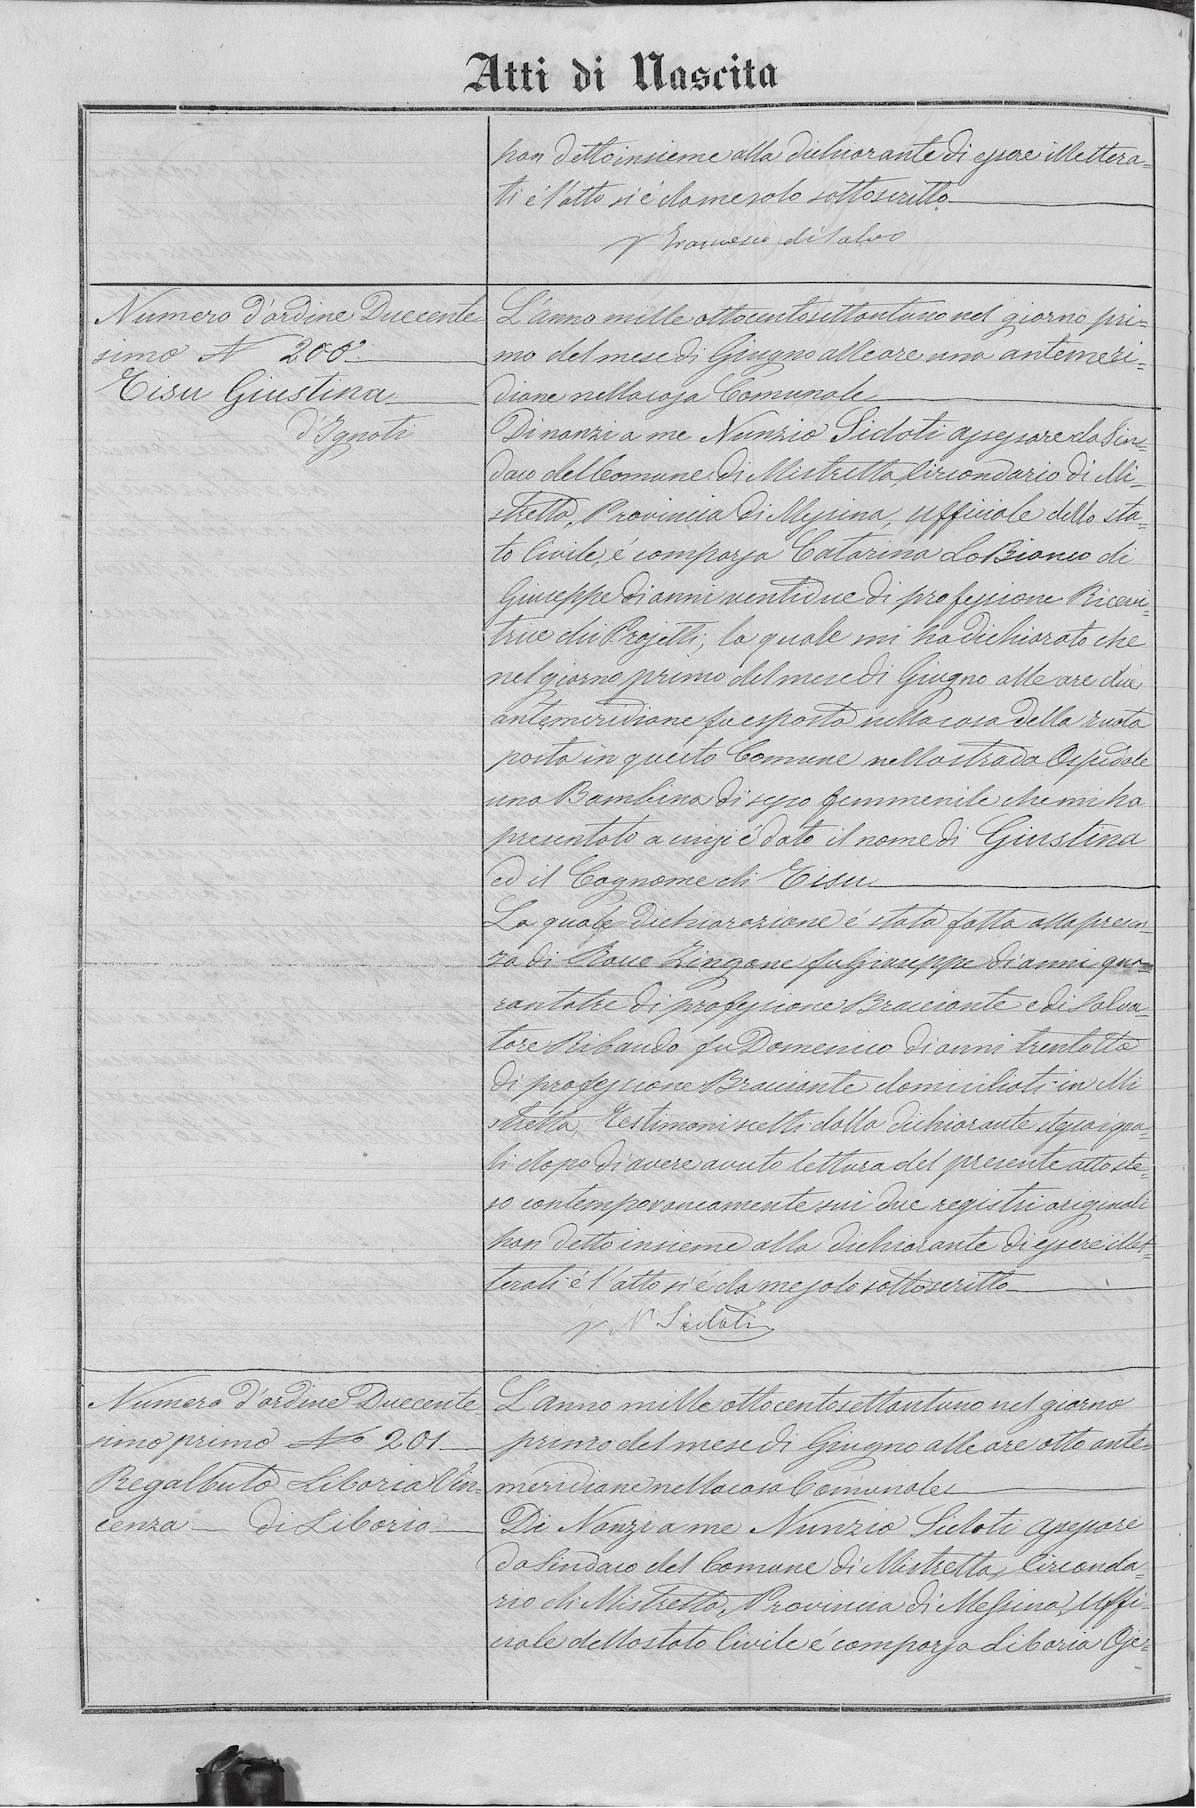 Atti di Nascita
han detto insieme alla dichiarante di essere illettera-
ti é l'atto si é da me solo sottoscritto
Francesco di Salvo
Numero d'ordine Duecente
simo N 200
Tisu Giustina
d'Ignoti
L'anno mille ottocentosettantuno nel giorno pri-
mo del mese di Giugno alle ore una antimeri-
diane nella casa Comunale
Dinanzi a me Nunzio Sidoti assessore da Sin-
daco del Comune di Mistretta, Circondario di Mi-
stretta, Provincia di Messina, Ufficiale dello sta-
to Civile, é comparsa Catarina Lo Bianco di
Giuseppe di anni ventidue di professione Ricevi-
trice dei Projetti, la quale mi ha dichiarato che
nel giorno primo del mese di Giugno alle ore due
antimeridiane fu esposta nella casa della ruota
posta in questo Comune nella strada Ospedale
una Bambina di sesso femmenile che mi ha
presentato a cui si é dato il nome di Giustina
ed il Cognome di Tisu
La quale dichiarazione é stata fatta alla presen-
za di Rocco Zingone fu Giuseppe di anni qua-
rantatre di professione Bracciante e di Salva-
tore Ribaudo fu Domenico di anni trentotto
di professione Bracciante domiciliati in Mi
stretta, Testimoni scelti dalla dichiarante stessa i qua-
li dopo di avere avuto lettura del presente atto ste-
so contemporaneamente sui due registri originali
han detto insieme alla dichiarante di essere illet-
terati é l'atto si é da me solo sottoscritto
N Sidoti
Numero d'ordine Duecente
simo primo No 201
Regalbuto Liboria Vin-
cenza di Liborio
L'anno mille ottocentosettantuno nel giorno
primo del mese di Giugno alle ore otto ante-
meridiane nella casa Comunale
Di Nanzi a me Nunzio Sidoti assessore
da Sindaco del Comune di Mistretta, Circonda-
rio di Mistretta, Provincia di Messina, Uffi-
ciale dello stato Civile é comparsa Liboria